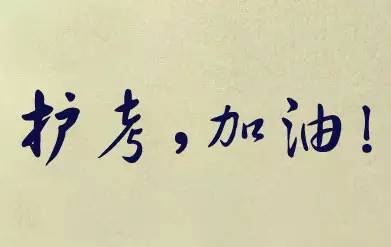 护考，加油！